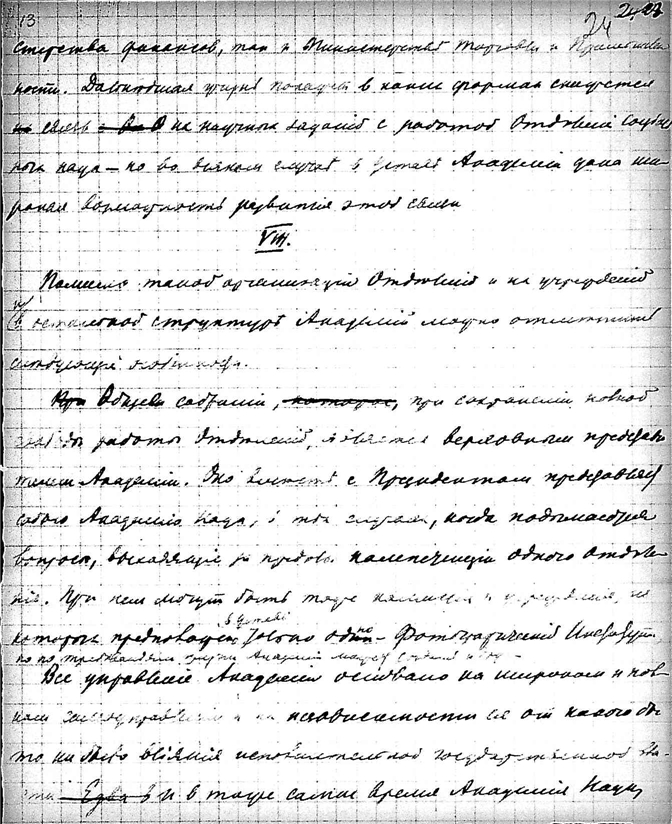 13
24
стерства финансов, так и Министерства Торговли и Промышлен
ности. Дальнѣйшая жизнь покажет в какие формы сложится
связь научных заданий с работой Отдѣлений
ных наук – но во всяком случаѣ в уставѣ Академии дана ши
рокая возможность развития этой связи
VIII.
Помимо такой организации Отдѣлений и их учреждений
в остальной структурѣ Академии можно отмѣтить
слѣдующия особенности.
При Общем собрании, которое, при сохранении полной
свободы работы Отдѣлений, является верховным представи
телем Академии. Оно вмѣстѣ с Президентом представляет
собою Академию Наук, в тѣх случаях, когда подымаются
вопросы, выходящие за предѣлы компетенции одного Отдѣле
ния. При нем могут быть также комиссии и учреждения, из
в уставѣ
которых предположен только один – Фотографический Институт
но по
Все управление Академии основано на широком и пол
ном самоуправлении и на независимости ея от какого бы
то ни было влияния исполнительной государственной вла
сти Едва и в тоже самое время Академия Наук,